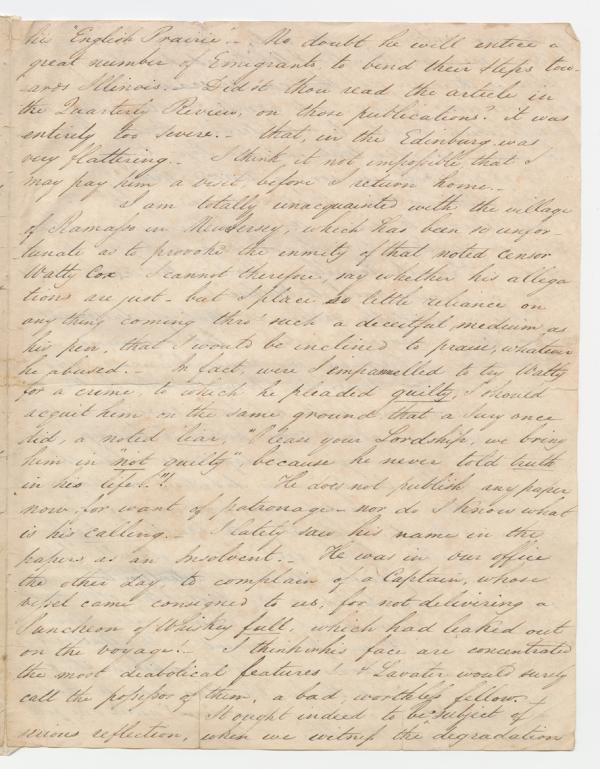 his "English Prairie".- No doubt he will entice a
great number of Emigrants, to bend their steps tow-
ards Illinois.- Did'st thou read the article in
the Quarterly Review, on those publications? it was
entirely too severe.- that, in the Edinburg, was
very flattering.- I think it not impossible that I
may pay him a visit, before I return home.-
I am totally unacquainted with the village
of Ramapo in New Jersey, which has been so unfor
tunate as to provoke the enmity of that noted censor
Watty Cox. I cannot therefore say whether his allega
tions are just - but I place so little reliance on
any thing coming thro' such a deceitful medium, as
his pen, that I would be inclined to praise, whatever
he abused.- In fact, were I empannelled to try Watty
for a crime, to which he pleaded guilty, I should
acquit him on the same ground that a Jury once
did, a noted liar, "Please your Lordship, we bring
him in "not guilty", because he never told truth
in his life!"! He does not publish any paper
now, for want of patronage - nor do I know what
is his calling.- I lately saw his name in the
papers as an Insolvent.- He was in our office
the other day, to complain of a Captain, whose
vessel came consigned to us, for not delivering a
Puncheon of Whiskey full, which had leaked out
on the voyage.- I think in his face are concentrated
the most diabolical features! & Lavater would surely
call the possessor of them, a bad, worthless fellow.-
It ought indeed to be subject of
serious reflection, when we witness the degradation